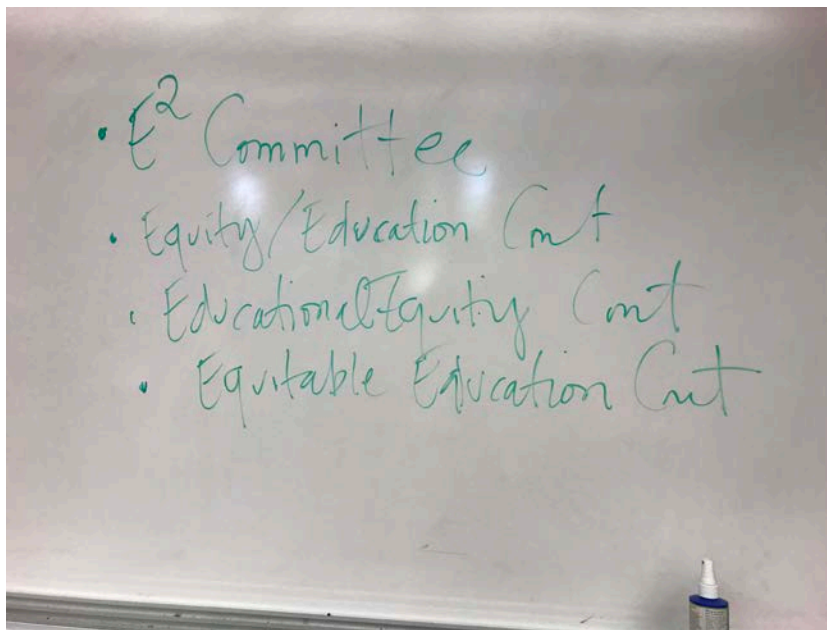 • E² Committee
• Equity/Education Cmt
• Educational Equity Cmt
• Equitable Education Cmt